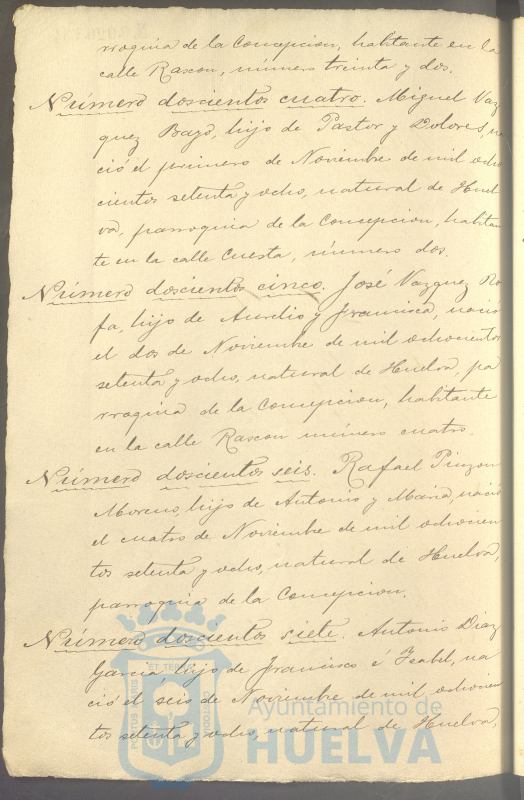 rroquia de la Concepcion, habitante en la
calle Rascon, número treinta y dos.
Número doscientos cuatro. Miguel Vaz
quez Bayo, hijo de Pastor y Dolores, na
ció el primero de Noviembre de mil ocho
cientos setenta y ocho, natural de Huel
va, parroquia de la Concepcion, habitan
te en la calle Cuesta, número dos.
Número doscientos cinco. José Vazquez Ro
fa, hijo de Aurelio y Francisca, nació
el dos de Noviembre de mil ochocientos
setenta y ocho, natural de Huelva, pa
rroquia de la Concepcion, habitante
en la calle Rascon número cuatro.
Número doscientos seis. Rafael Pinzon
Moreno, hijo de Antonio y Maria, nació
el cuatro de Noviembre de mil ochocien
tos setenta y ocho, natural de Huelva,
parroquia de la Concepcion.
Número doscientos siete. Antonio Diaz
Garcia, hijo de Francisco é Isabel, na
ció el seis de Noviembre de mil ochocien
tos setenta y ocho, natural de Huelva,
Ayuntamiento de
HUELVA